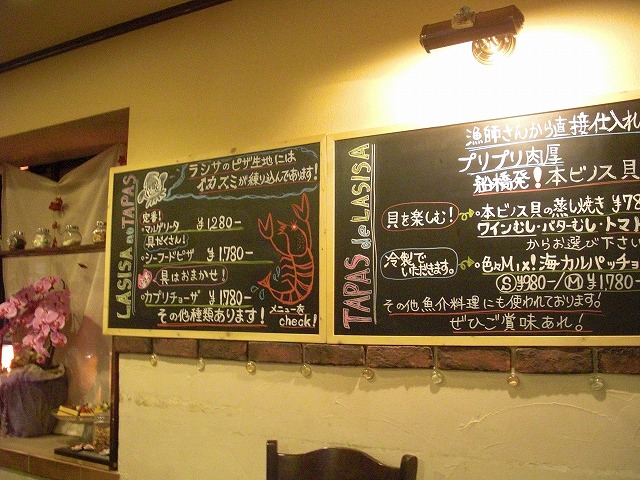 LASISA no TAPAS
ラシサのピザ生地には
イカスミが練り込んであります!
定番!
・マルゲリータ ¥1280-
具だくさん!
・シーフードピザ ¥1780-
具はおまかせ!
カプリチョーザ ¥1780-
その他種類あります!
メニューを
check!
TAPAS de LASISA
漁師さんから直接仕入れ
プリプリ肉厚
船橋発!本ビノス貝
貝を楽しむ!
・本ビノス貝の蒸し焼き ¥78
ワインむし・バターむし・トマト
からお選び下さい
冷製で
いただきます。
・色々Mix!海カルパッチョ
Ⓢ¥980-/Ⓜ¥1780-
その他魚介料理にも使われております。
ぜひご賞味あれ!